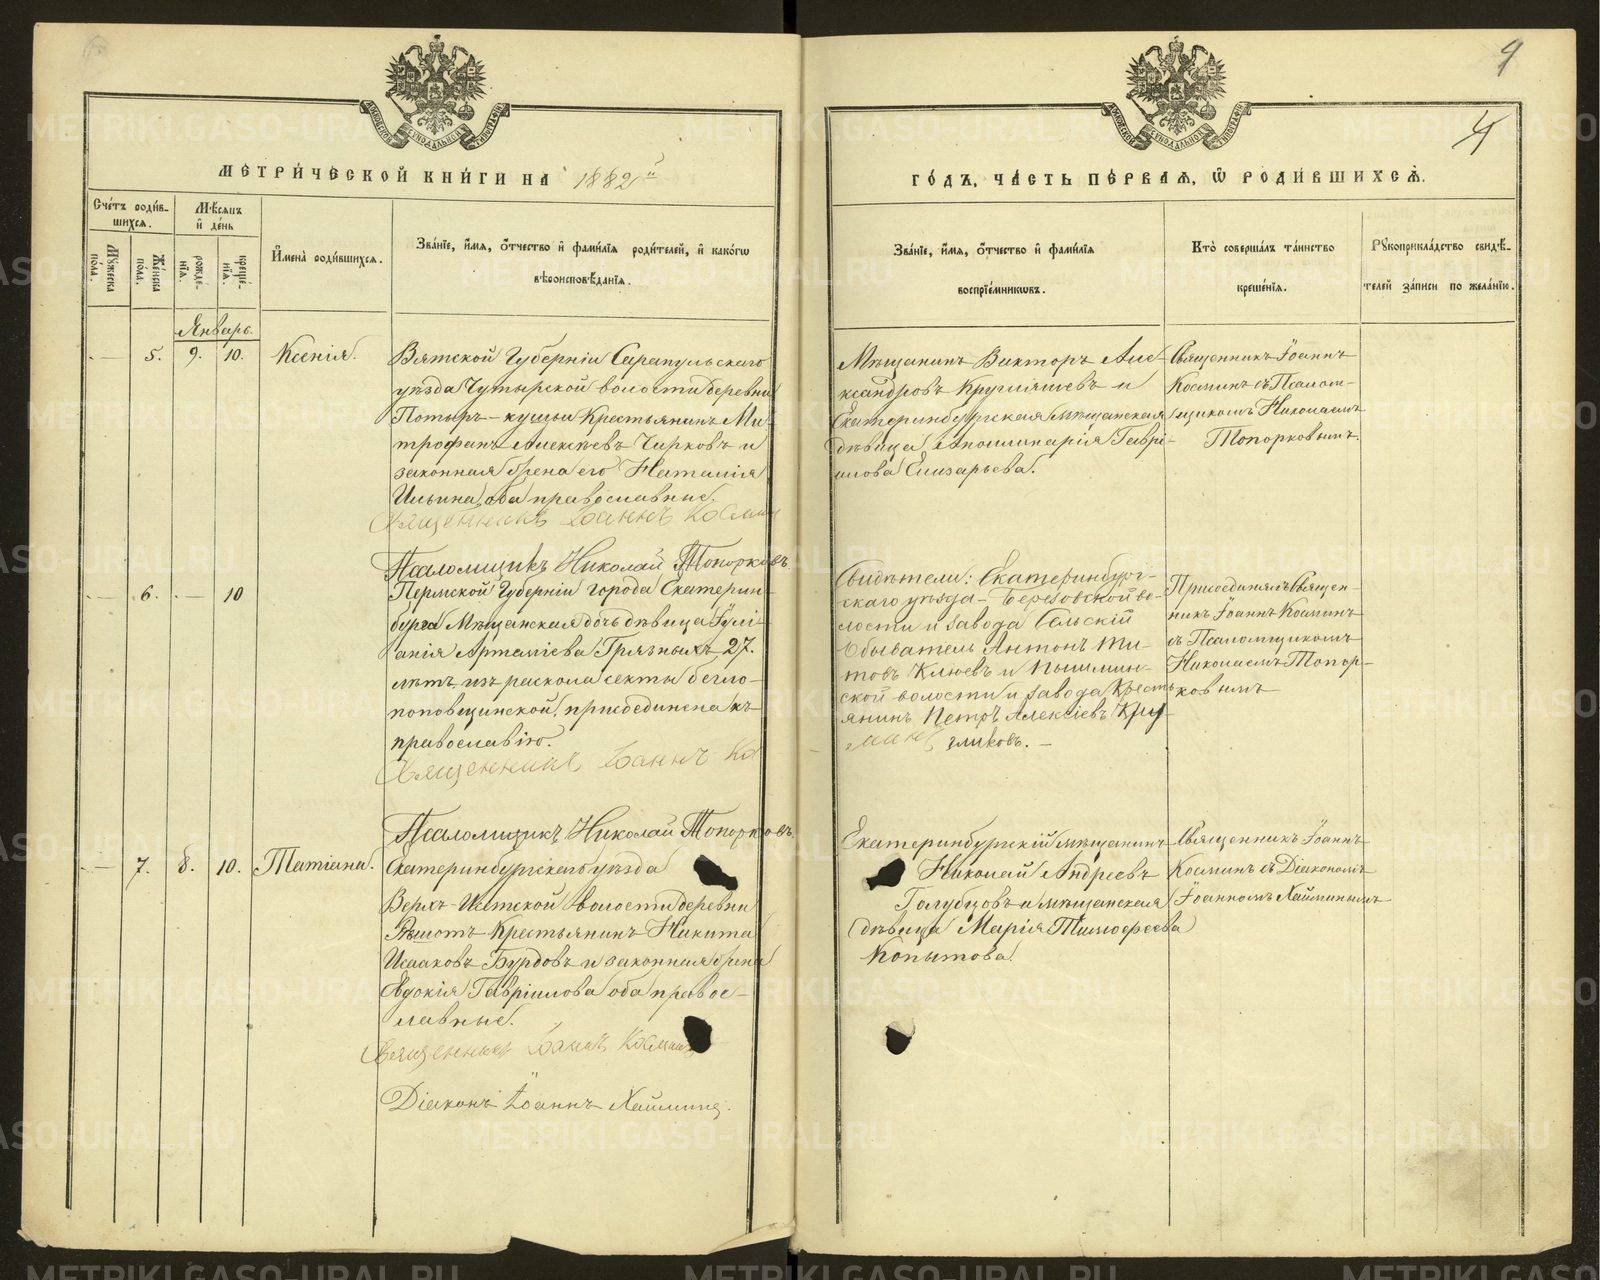 9
4
МЕТРИ́ЧЕСКОЙ КНИ́ГИ НА 1882й
ГО́ДЪ, ЧА́СТЬ ПЕ́РВАЯ, Ѡ РОДИ́ВШИХСЯ.
Сче́тъ роди́в-
шихся.
Мѣсяцъ
и҆ де́нь
Мꙋжеска по́ла.
Же́нска по́ла.
рожде́-нїя.
креще́-нїя.
И҆мена̀ роди́вшихся.
Зва́нїе, и҆мя, о҆тчество и҆ фами́лїя роди́телей, и҆ како́гѡ
вѣроисповѣ́данїя.
Зва́нїе, и҆мя, о҆тчество и҆ фами́лїя
воспрїе́мникѡвъ.
Кто̀ соверша́лъ та́инство
креще́нїя.
Рꙋкоприкла́дство свидѣ́-
телей за́писи по жела́нїю.
Январь.
5. 9. 10. Ксенія.
Вятской Губерніи Сарапульскаго
уѣзда Чутырской волости деревни
Потыръ-кушьи Крестьянинъ Ми-
трофанъ Алексѣевъ Чирковъ и
законная жена его Наталія
Ильина, оба православные.
Священникъ Іоаннъ Космин
Псаломщикъ Николай Топорковъ.
Мѣщанинъ Викторъ Але-
ксандровъ Кругляшевъ и
Екатеринбургская мѣщанская
дѣвица Аполлинарія Гаврі-
илова Елизарьева.
Священникъ Іоаннъ
Косминъ съ Псалом-
щикомъ Николаемъ
Топорковымъ.
6. 10
Пермской Губерніи города Екатерин-
бурга Мѣщанская дочь дѣвица Іулі-
анія Артеміева Грязныхъ 27.
лѣтъ, изъ раскола секты бѣгло-
поповщинской, присоединена къ
православію.
Священникъ Іоаннъ Ко
смин
Псаломщикъ Николай Топорковъ.
Свидѣтели: Екатеринбург-
скаго уѣзда - Березовской во-
лости и завода Сельскій
Обыватель Антонъ Ти-
товъ Клюевъ и Пышмин-
ской волости и завода Кресть-
янинъ Петръ Алексіевъ Кру
гликовъ. -
Присоединялъ Священ-
никъ Іоаннъ Косминъ
съ Псаломщикомъ
Николаемъ Топор-
ковымъ
7. 8. 10. Татіана.
Екатеринбургскаго уѣзда
Верхъ-Исетской волости деревни
Рѣшотъ Крестьянинъ Никита
Исааковъ Бурдовъ и законная жена
Евдокія Гавріилова оба правос-
лавные.
Священникъ Іоаннъ Косминъ
Діаконъ Іоаннъ Хаймин.
Екатеринбургскій мѣщанинъ
Николай Андреевъ
Голубцовъ и мѣщанская
дѣвица Марія Тимоѳеева
Копытова.
Священникъ Іоаннъ
Косминъ съ Діакономъ
Іоанномъ Хайминымъ
METRIKI.GASO-URAL.RU